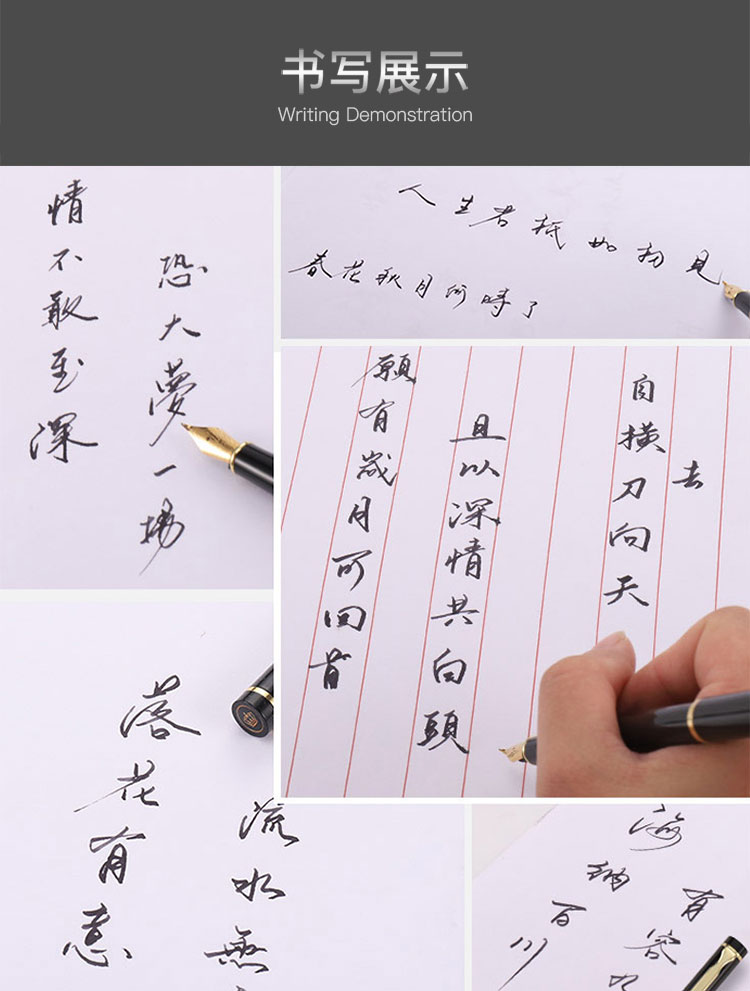 书写展示
Writing Demonstration
情不敢至深
恐大夢一場
人生若祗如初見
春花秋月何時了
願有歲月可回首
且以深情共白頭
自橫刀向天
去
落花有意
流水無
海納百川
有容乃